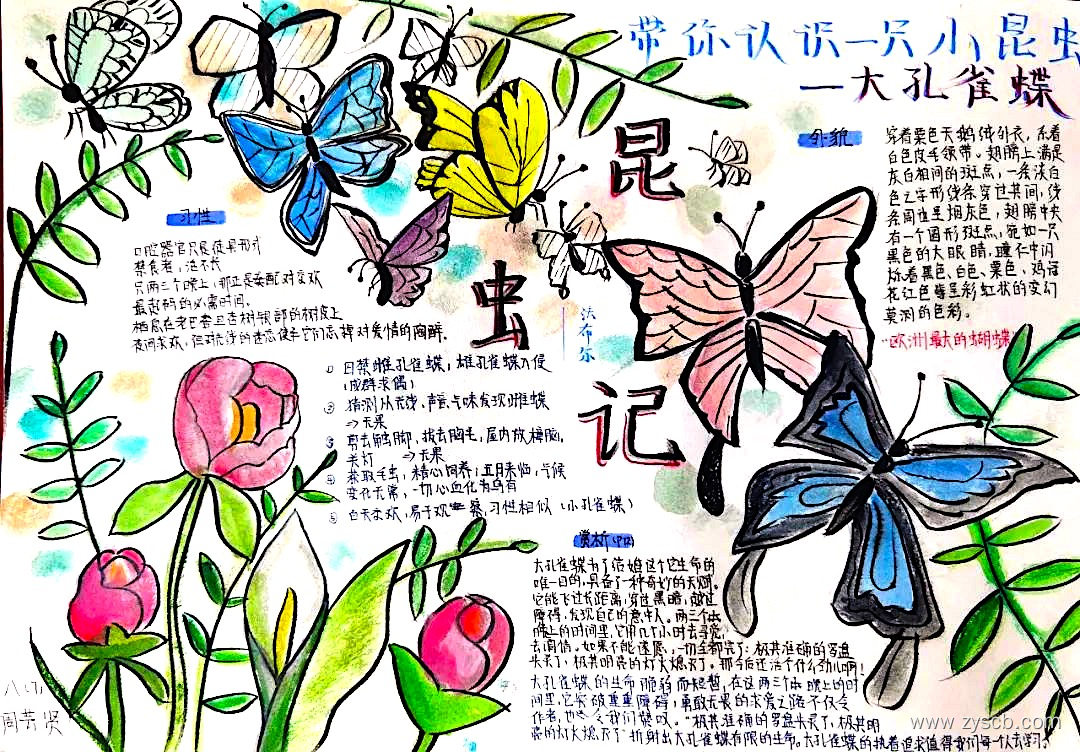 带你认识一只小昆虫
—大孔雀蝶
昆
虫
记
法布尔
外貌
穿着栗色天鹅绒外衣，系着
白色皮毛领带。翅膀上满是
灰白相间的斑点，一条淡白
色之字形线条穿过其间，线
条周边呈烟灰色，翅膀中央
有一个圆形斑点，宛如一只
黑色的大眼睛，瞳仁中闪
烁着黑色、白色、栗色、鸡冠
花红色等呈彩虹状的变幻
莫测的色彩。
欧洲最大的蝴蝶
习性
口腔器官只是徒具形式
禁食者，活不长
只两三个晚上，那正是婚配对交欢
最起码的必需时间。
栖息在老巴旦杏树根部的树皮上
① 日禁雌孔雀蝶，雄孔雀蝶入侵
（成群求偶）
② 猜测从无线、声音、气味发现雌蝶
⇒无果
③ 剪去触脚，拔去胸毛，屋内放樟脑，
关灯 ⇒无果
④ 获取毛虫，精心饲养；五月来临，气候
变化无常，一切心血化为乌有
⑤ 白天求欢，易于观察，习性相似（小孔雀蝶）
赏析
大孔雀蝶为了结婚这个它生命的
唯一目的，具备了一种奇妙的天赋。
它能飞过长距离，穿过黑暗，越过
障碍，发现自己的意中人。两三个
晚上的时间里，它用几个小时去寻觅，
去调情。如果不能遂愿，一切全都完了：极其准确的罗盘
失灵了，极其明亮的灯火熄灭了。那今后还活个什么劲儿啊！
大孔雀蝶的生命脆弱而短暂，在这两三个晚上的时
间里，它突破重重障碍，勇敢无畏的求爱之路不仅令
作者，也令我们赞叹。“极其准确的罗盘失灵了，极其明
亮的灯火熄灭了”折射出大孔雀蝶有限的生命，大孔雀蝶的执着追求值得我们每个人去学习。
周芸贤
www.zyscb.com